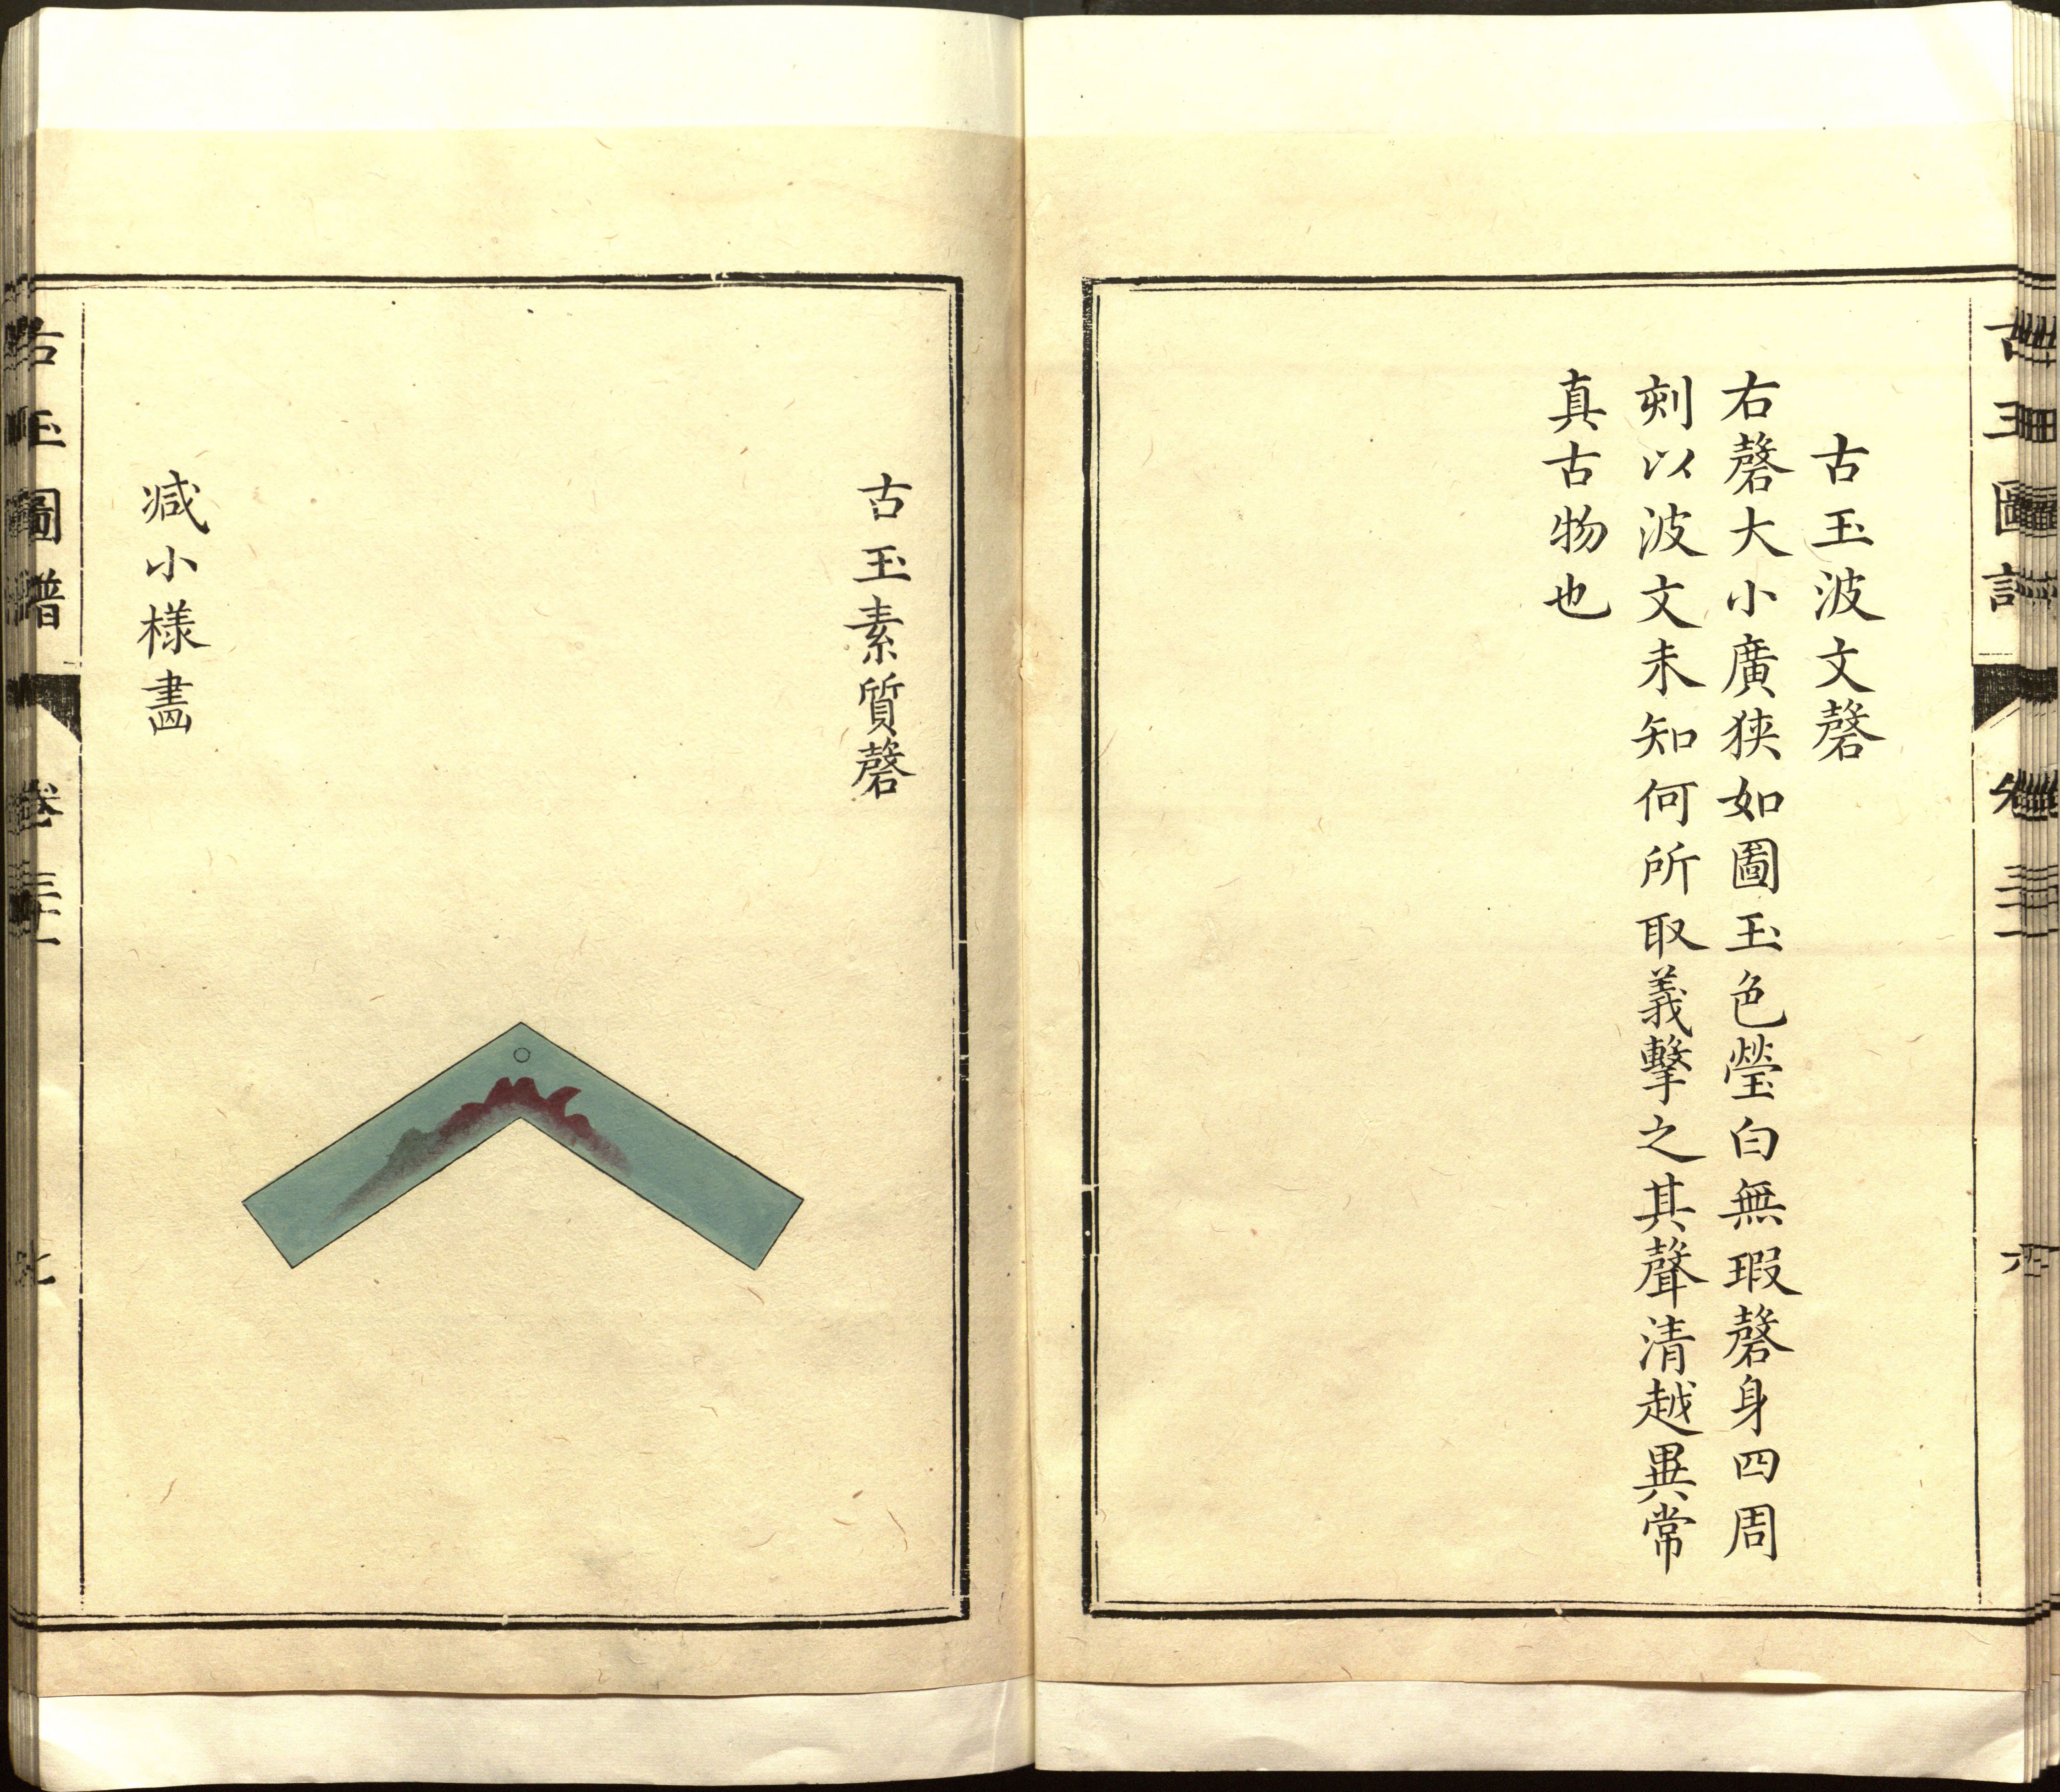 古玉波文磬
右磬大小廣狹如圖玉色瑩白無瑕磬身四周
刻以波文未知何所取義擊之其聲清越異常
真古物也
古玉素質磬
减小樣畵
古玉圖譜
卷三十一